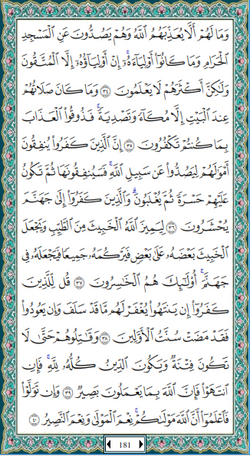 وَمَا لَهُمْ أَلَّا يُعَذِّبَهُمُ اللَّهُ وَهُمْ يَصُدُّونَ عَنِ الْمَسْجِدِ
الْحَرَامِ وَمَا كَانُوا أَوْلِيَاءَهُ إِنْ أَوْلِيَاؤُهُ إِلَّا الْمُتَّقُونَ
وَلَٰكِنَّ أَكْثَرَهُمْ لَا يَعْلَمُونَ ٣٤ وَمَا كَانَ صَلَاتُهُمْ
عِنْدَ الْبَيْتِ إِلَّا مُكَاءً وَتَصْدِيَةً فَذُوقُوا الْعَذَابَ
بِمَا كُنْتُمْ تَكْفُرُونَ ٣٥ إِنَّ الَّذِينَ كَفَرُوا يُنْفِقُونَ
أَمْوَالَهُمْ لِيَصُدُّوا عَنْ سَبِيلِ اللَّهِ فَسَيُنْفِقُونَهَا ثُمَّ تَكُونُ
عَلَيْهِمْ حَسْرَةً ثُمَّ يُغْلَبُونَ وَالَّذِينَ كَفَرُوا إِلَىٰ جَهَنَّمَ
يُحْشَرُونَ ٣٦ لِيَمِيزَ اللَّهُ الْخَبِيثَ مِنَ الطَّيِّبِ وَيَجْعَلَ
الْخَبِيثَ بَعْضَهُ عَلَىٰ بَعْضٍ فَيَرْكُمَهُ جَمِيعًا فَيَجْعَلَهُ فِي
جَهَنَّمَ أُولَٰئِكَ هُمُ الْخَاسِرُونَ ٣٧ قُلْ لِلَّذِينَ
كَفَرُوا إِنْ يَنْتَهُوا يُغْفَرْ لَهُمْ مَا قَدْ سَلَفَ وَإِنْ يَعُودُوا
فَقَدْ مَضَتْ سُنَّتُ الْأَوَّلِينَ ٣٨ وَقَاتِلُوهُمْ حَتَّىٰ لَا
تَكُونَ فِتْنَةٌ وَيَكُونَ الدِّينُ كُلُّهُ لِلَّهِ فَإِنِ
انْتَهَوْا فَإِنَّ اللَّهَ بِمَا يَعْمَلُونَ بَصِيرٌ ٣٩ وَإِنْ تَوَلَّوْا
فَاعْلَمُوا أَنَّ اللَّهَ مَوْلَاكُمْ نِعْمَ الْمَوْلَىٰ وَنِعْمَ النَّصِيرُ ٤٠
181